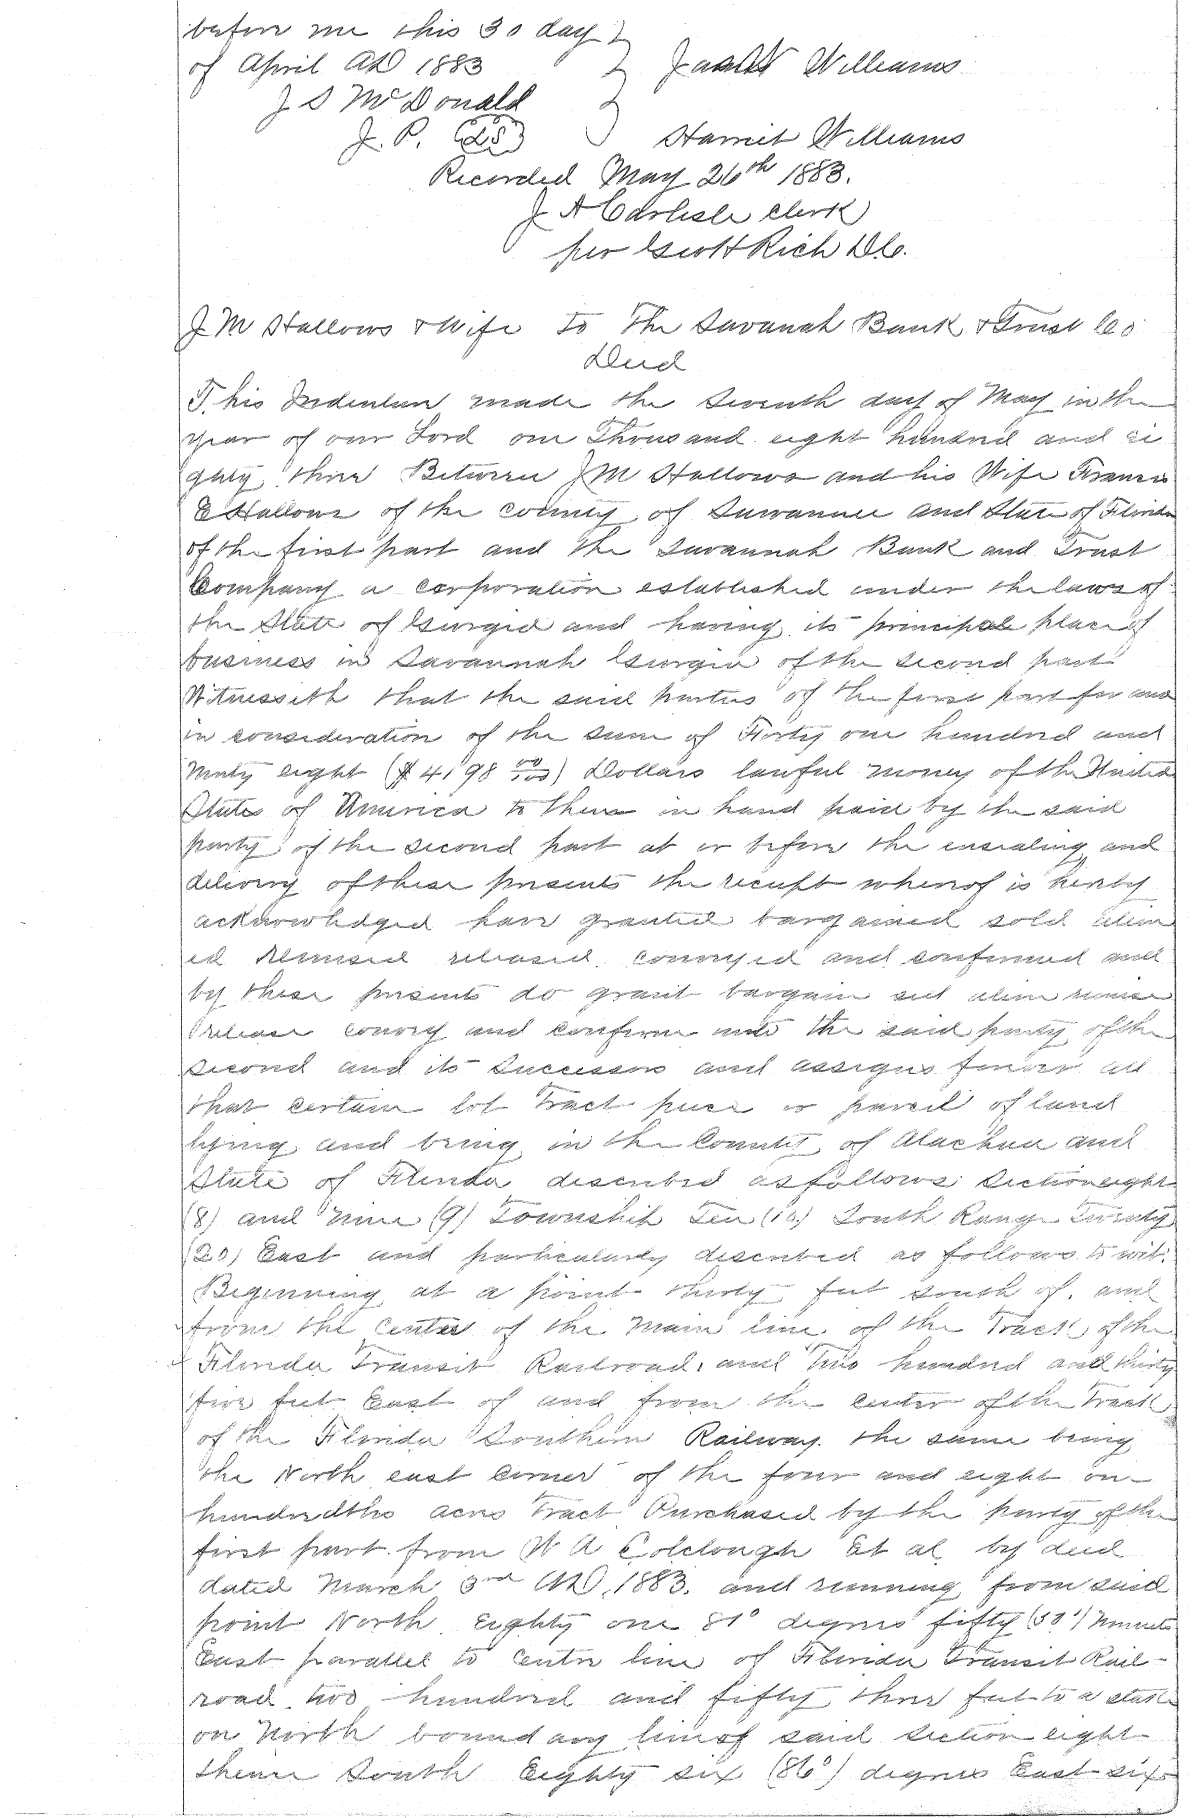 before me this 30 day
of April AD 1883 Jas W Williams
J S McDonald
J. P. (LS) Harriet Williams
Recorded May 26th 1883.
J A Carlisle Clerk
per Geo H Rich D.C.
J M Hallows & Wife to The Savanah Bank & Trust Co
Deed
This Indenture made the Seventh day of May in the
year of our Lord one Thousand eight hundred and ei
ghty three Between J M Hallows and his Wife Francis
E Hallows of the County of Suwannee and State of Florida
of the first part and the Savannah Bank and Trust
Company a corporation established under the laws of
the State of Georgia and having its principal place of
business in Savannah Georgia of the second part
Witnesseth that the said parties of the first part for and
in consideration of the sum of Forty one hundred and
Ninty eight ($4198 00/100) Dollars lawful money of the United
States of America to them in hand paid by the said
party of the second part at or before the ensealing and
delivery of these presents the receipt whereof is hereby
acknowledged have granted bargained sold alien
ed remised released conveyed and confirmed and
by these presents do grant bargain sell alien remise
release convey and confirm unto the said party of the
second and its successors and assigns forever all
that certain lot Tract piece or parcel of land
lying and being in the County of Alachua and
State of Florida described as follows: Section eight
(8) and Nine (9) Township Ten (10) South Range Twenty
(20) East and particularly described as follows to wit:
Beginning at a point thirty feet south of. and
from the center of the Main line of the Track of the
Florida Transit Railroad, and Two hundred and thirty
five feet East of and from the center of the Track
of the Florida Southern Railway. the same being
the North east corner of the four and eight one
hundredths acres Tract Purchased by the party of the
first part from W A Colclough Et al by deed
dated March 3rd AD. 1883. and running from said
point North Eighty one 81° degrees fifty (50') Minutes
East parallel to centre line of Florida Transit Rail-
road two hundred and fifty three feet to a stake
on North boundary line of said Section eight
thence South Eighty six (86°) degrees East six